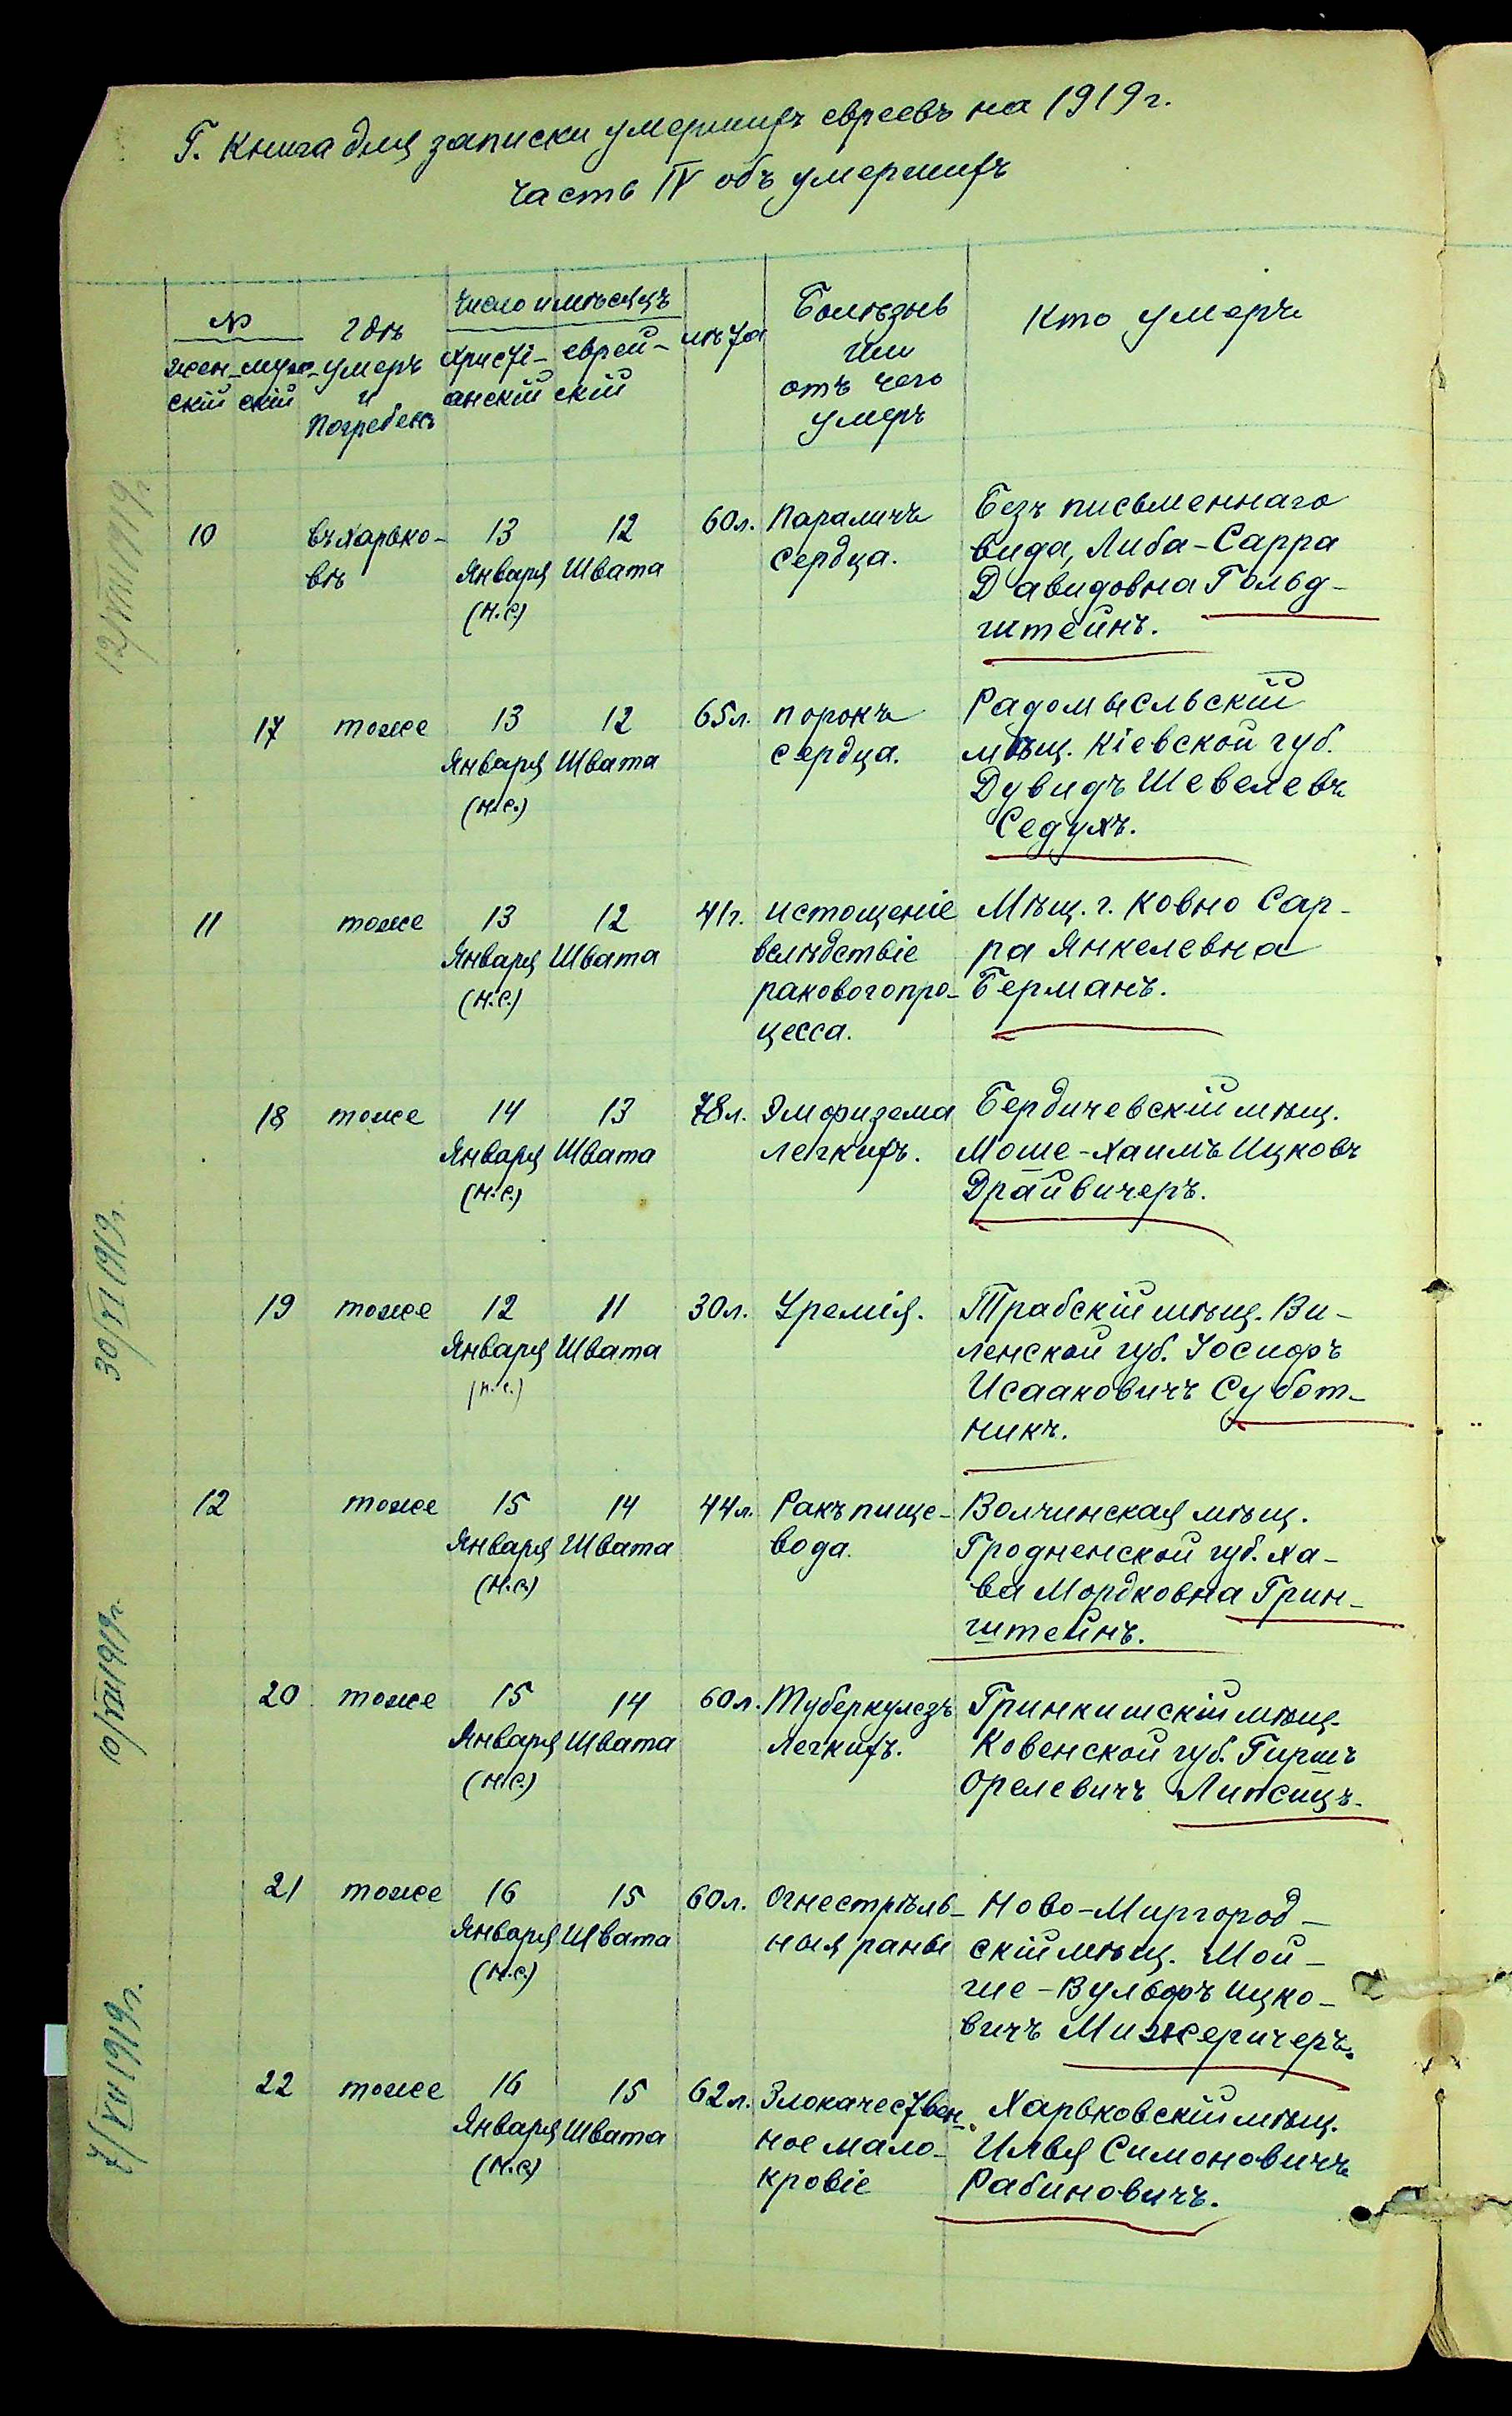 Г. Книга для записки умершихъ евреевъ на 1919 г.
часть IV объ умершихъ
№
жен-
скій
муж-
скій
гдѣ
умеръ
и
погребенъ
Число и мѣсяцъ
христі-
анскій
еврей-
скій
лѣта
Болѣзнь
или
отъ чего
умеръ
Кто умеръ
12/VIII 1919 г.
10
въ Харько-
вѣ
13
Января
(н.с.)
12
Швата
60 л.
Параличъ
сердца.
Безъ письменнаго
вида, Либа-Сарра
Давидовна Гольд-
штейнъ.
17
тоже
13
Января
(н.с.)
12
Швата
65 л.
порокъ
сердца.
Радомысльскій
мѣщ. Кіевской губ.
Дувидъ Шевелевъ
Седухъ.
11
тоже
13
Января
(н.с.)
12
Швата
41 г.
истощеніе
вслѣдствіе
раковог опро-
цесса.
Мѣщ. г. Ковно Сар-
ра Янкелевна
Берманъ.
30/VI 1919 г.
18
тоже
14
Января
(н.с.)
13
Швата
78 л.
Эмфизема
легкихъ.
Бердичевскій мѣщ.
Моше-Хаимъ Ицковъ
Драйвичеръ.
19
тоже
12
Января
(н.с.)
11
Швата
30 л.
Уремія.
Трабскій мѣщ. Ви-
ленской губ. Іосифъ
Исааковичъ Субот-
никъ.
12
тоже
15
Января
(н.с.)
14
Швата
44 л.
Ракъ пище-
вода.
Волчинская мѣщ.
Гродненской губ. Ха-
ва Мордковна Грин-
штейнъ.
10/VII 1919 г.
20
тоже
15
Января
(н.с.)
14
Швата
60 л.
Туберкулезъ
легкихъ.
Гринкишскій мѣщ.
Ковенской губ. Гиршъ
Орелевичъ Липсицъ.
21
тоже
16
Января
(н.с.)
15
Швата
60 л.
Огнестрѣль-
ныя раны
Ново-Миргород-
скій мѣщ. Мой-
ше-Вульфъ Ицко-
вичъ Мижеричеръ.
7/VII 1919 г.
22
тоже
16
Января
(н.с.)
15
Швата
62 л.
Злокачествен-
ное мало-
кровіе
Харьковскій мѣщ.
Илья Симоновичъ
Рабиновичъ.